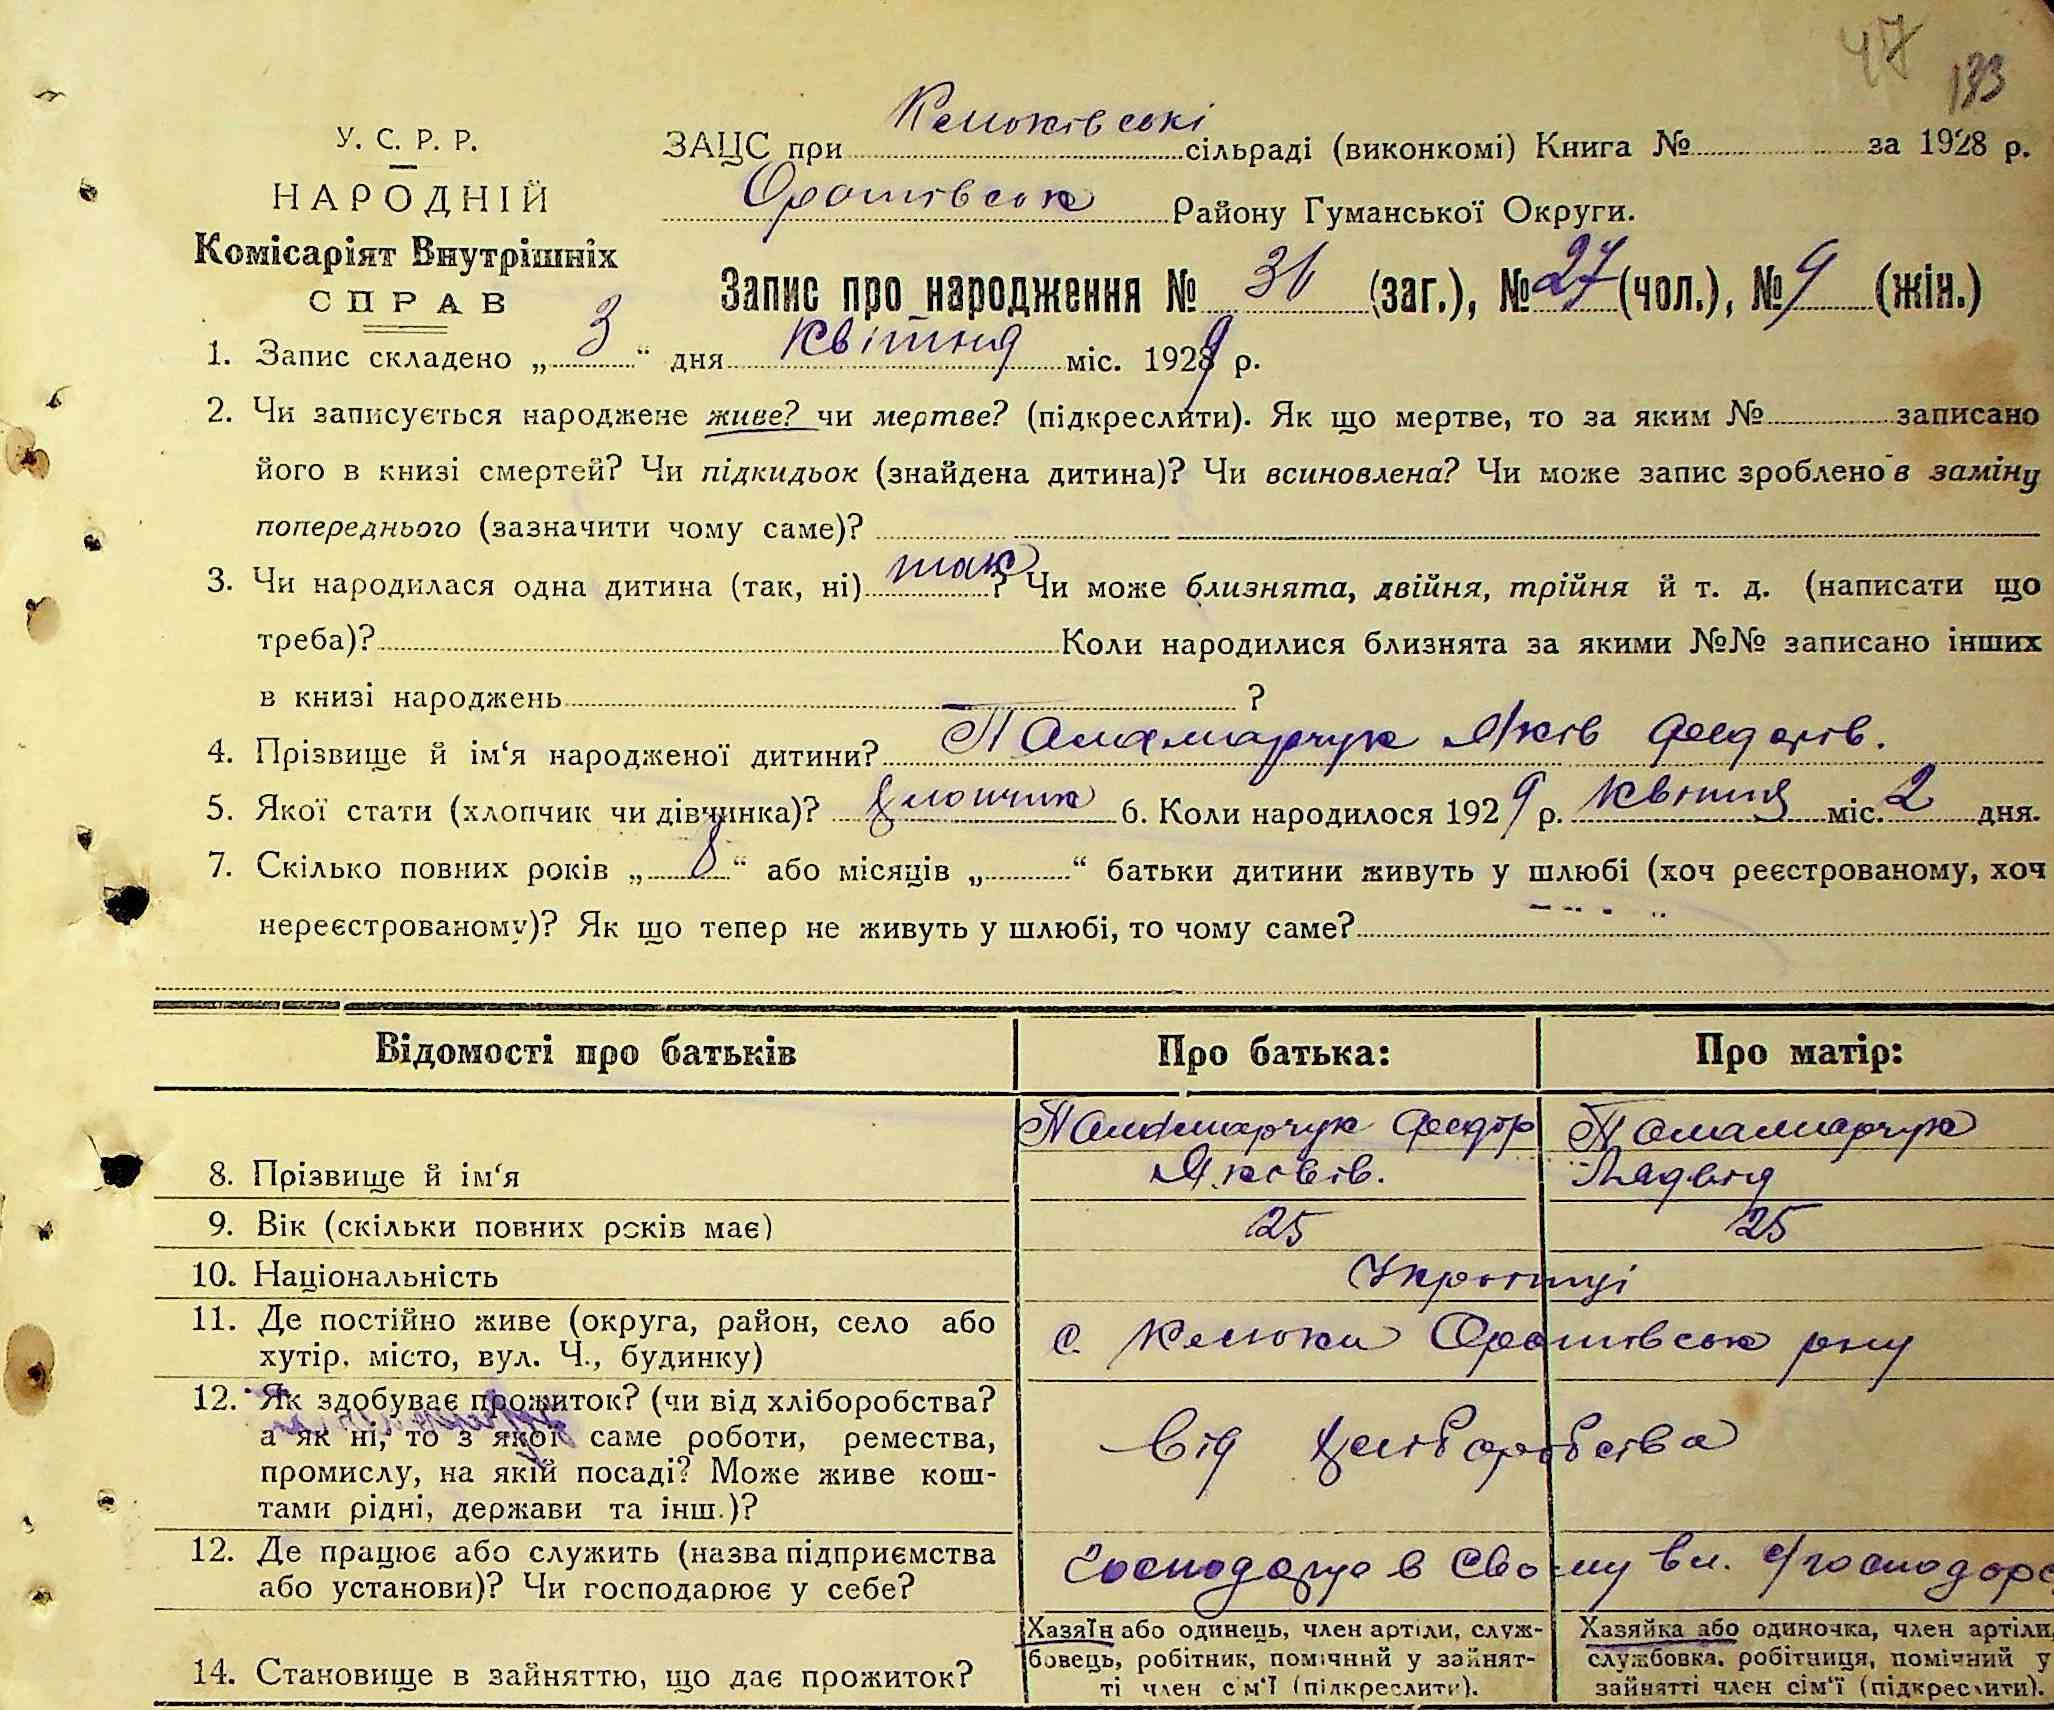 47 133
У. С. Р. Р.
НАРОДНІЙ
Комісаріят Внутрішніх
СПРАВ
ЗАЦС при Клюківські сільраді (виконкомі) Книга № за 1928 р.
Оратівськ Району Гуманської Округи.
Запис про народження № 36 (заг.), № 27 (чол.), № 9 (жін.)
1. Запис складено „ 3 “ дня квітня міс. 1929 р.
2. Чи записується народжене живе? чи мертве? (підкреслити). Як що мертве, то за яким № записано
його в книзі смертей? Чи підкидьок (знайдена дитина)? Чи всиновлена? Чи може запис зроблено в заміну
попереднього (зазначити чому саме)?
3. Чи народилася одна дитина (так, ні) так ? Чи може близнята, двійня, трійня й т. д. (написати що
треба)? Коли народилися близнята за якими №№ записано інших
в книзі народжень ?
4. Прізвище й ім‘я народженої дитини? Паламарчук Яків Федорів.
5. Якої стати (хлопчик чи дівчинка)? хлопчик 6. Коли народилося 1929 р. квітня міс. 2 дня.
7. Скілько повних років „ 8 “ або місяців „ “ батьки дитини живуть у шлюбі (хоч реєстрованому, хоч
нереєстрованому)? Як що тепер не живуть у шлюбі, то чому саме?
Відомості про батьків Про батька: Про матір:
Паламарчук Федор Паламарчук
8. Прізвище й ім‘я Яківів.
9. Вік (скільки повних років має) 25 25
10. Національність Українці
11. Де постійно живе (округа, район, село або
хутір, місто, вул. Ч., будинку) с. Клюки Оратівськ рну
12. Як здобуває прожиток? (чи від хліборобства?
а як ні, то з якої саме роботи, ремества,
промислу, на якій посаді? Може живе кош-
тами рідні, держави та інш.)? від хліборобства
12. Де працює або служить (назва підприємства
або установи)? Чи господарює у себе? Господарує в свому вл. с/господарс
14. Становище в зайняттю, що дає прожиток?
Хазяїн або одинець, член артіли, служ-
бовець, робітник, помічний у зайнят-
ті член сім‘ї (підкреслити).
Хазяйка або одиночка, член артіли,
службовка, робітниця, помічний у
зайнятті член сім‘ї (підкреслити).